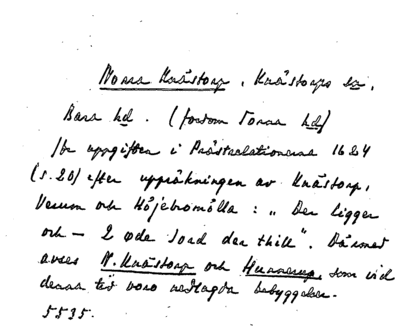 Norra Knästorp, Knästorps sn,
Bara hd. (fordom Torna hd)
Jfr uppgiften i Prästrelationerna 1624
(s. 20) efter uppräkningen av Knästorp,
Vesum och Höjebromölla: „Der ligger
och – 2 øde Jord der thill". Därmed
avses N. Knästorp och Hunnerup, som vid
denna tid voro nedlagda bebyggelser.
5535.